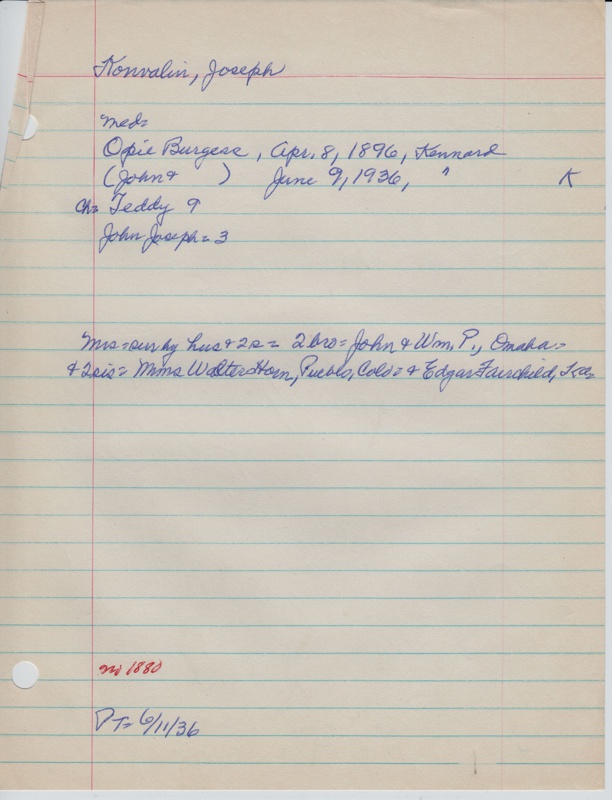 Konvalin, Joseph
med=
Opie Burgess, Apr. 8, 1896, Kennard
(John & ) June 9, 1936, " K
ch= Teddy 9
John Joseph = 3
Mrs = sur by hus & 2s = 2 bro = John & Wm. P., Omaha =
& 2 sis = Mmes Walter Horn, Pueblo, Colo = & Edgar Fairchild,
no 1880
PT= 6/11/36